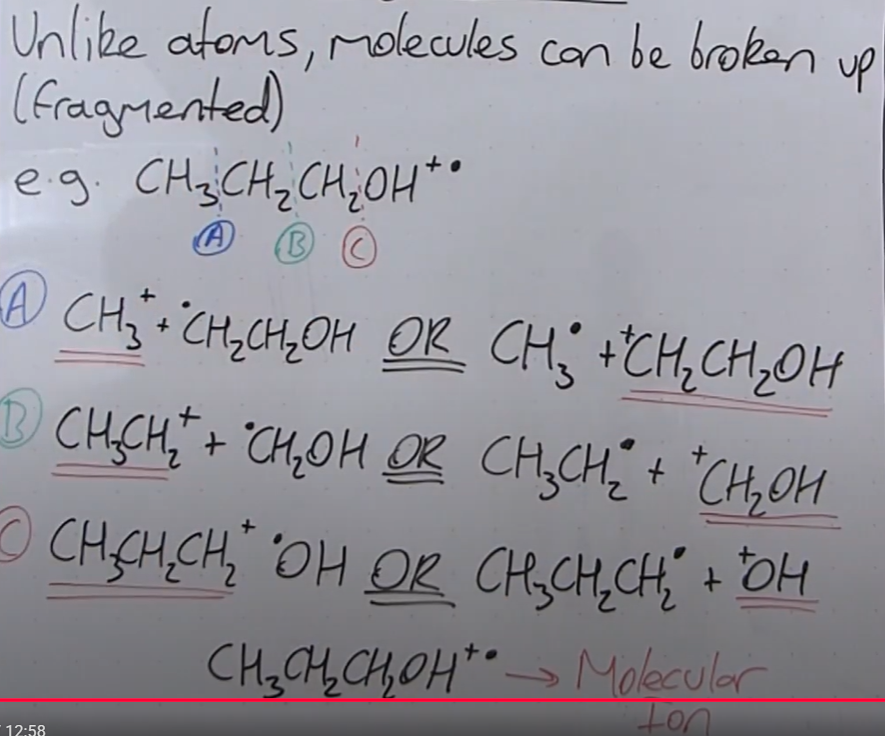 Unlike atoms, molecules can be broken up
(fragmented)
e.g. CH₃CH₂CH₂OH⁺•
Ⓐ Ⓑ Ⓒ
Ⓐ CH₃⁺ + •CH₂CH₂OH OR CH₃• + ⁺CH₂CH₂OH
Ⓑ CH₃CH₂⁺ + •CH₂OH OR CH₃CH₂• + ⁺CH₂OH
Ⓒ CH₃CH₂CH₂⁺ •OH OR CH₃CH₂CH₂• + ⁺OH
CH₃CH₂CH₂OH⁺• → Molecular
Ion
/ 12:58